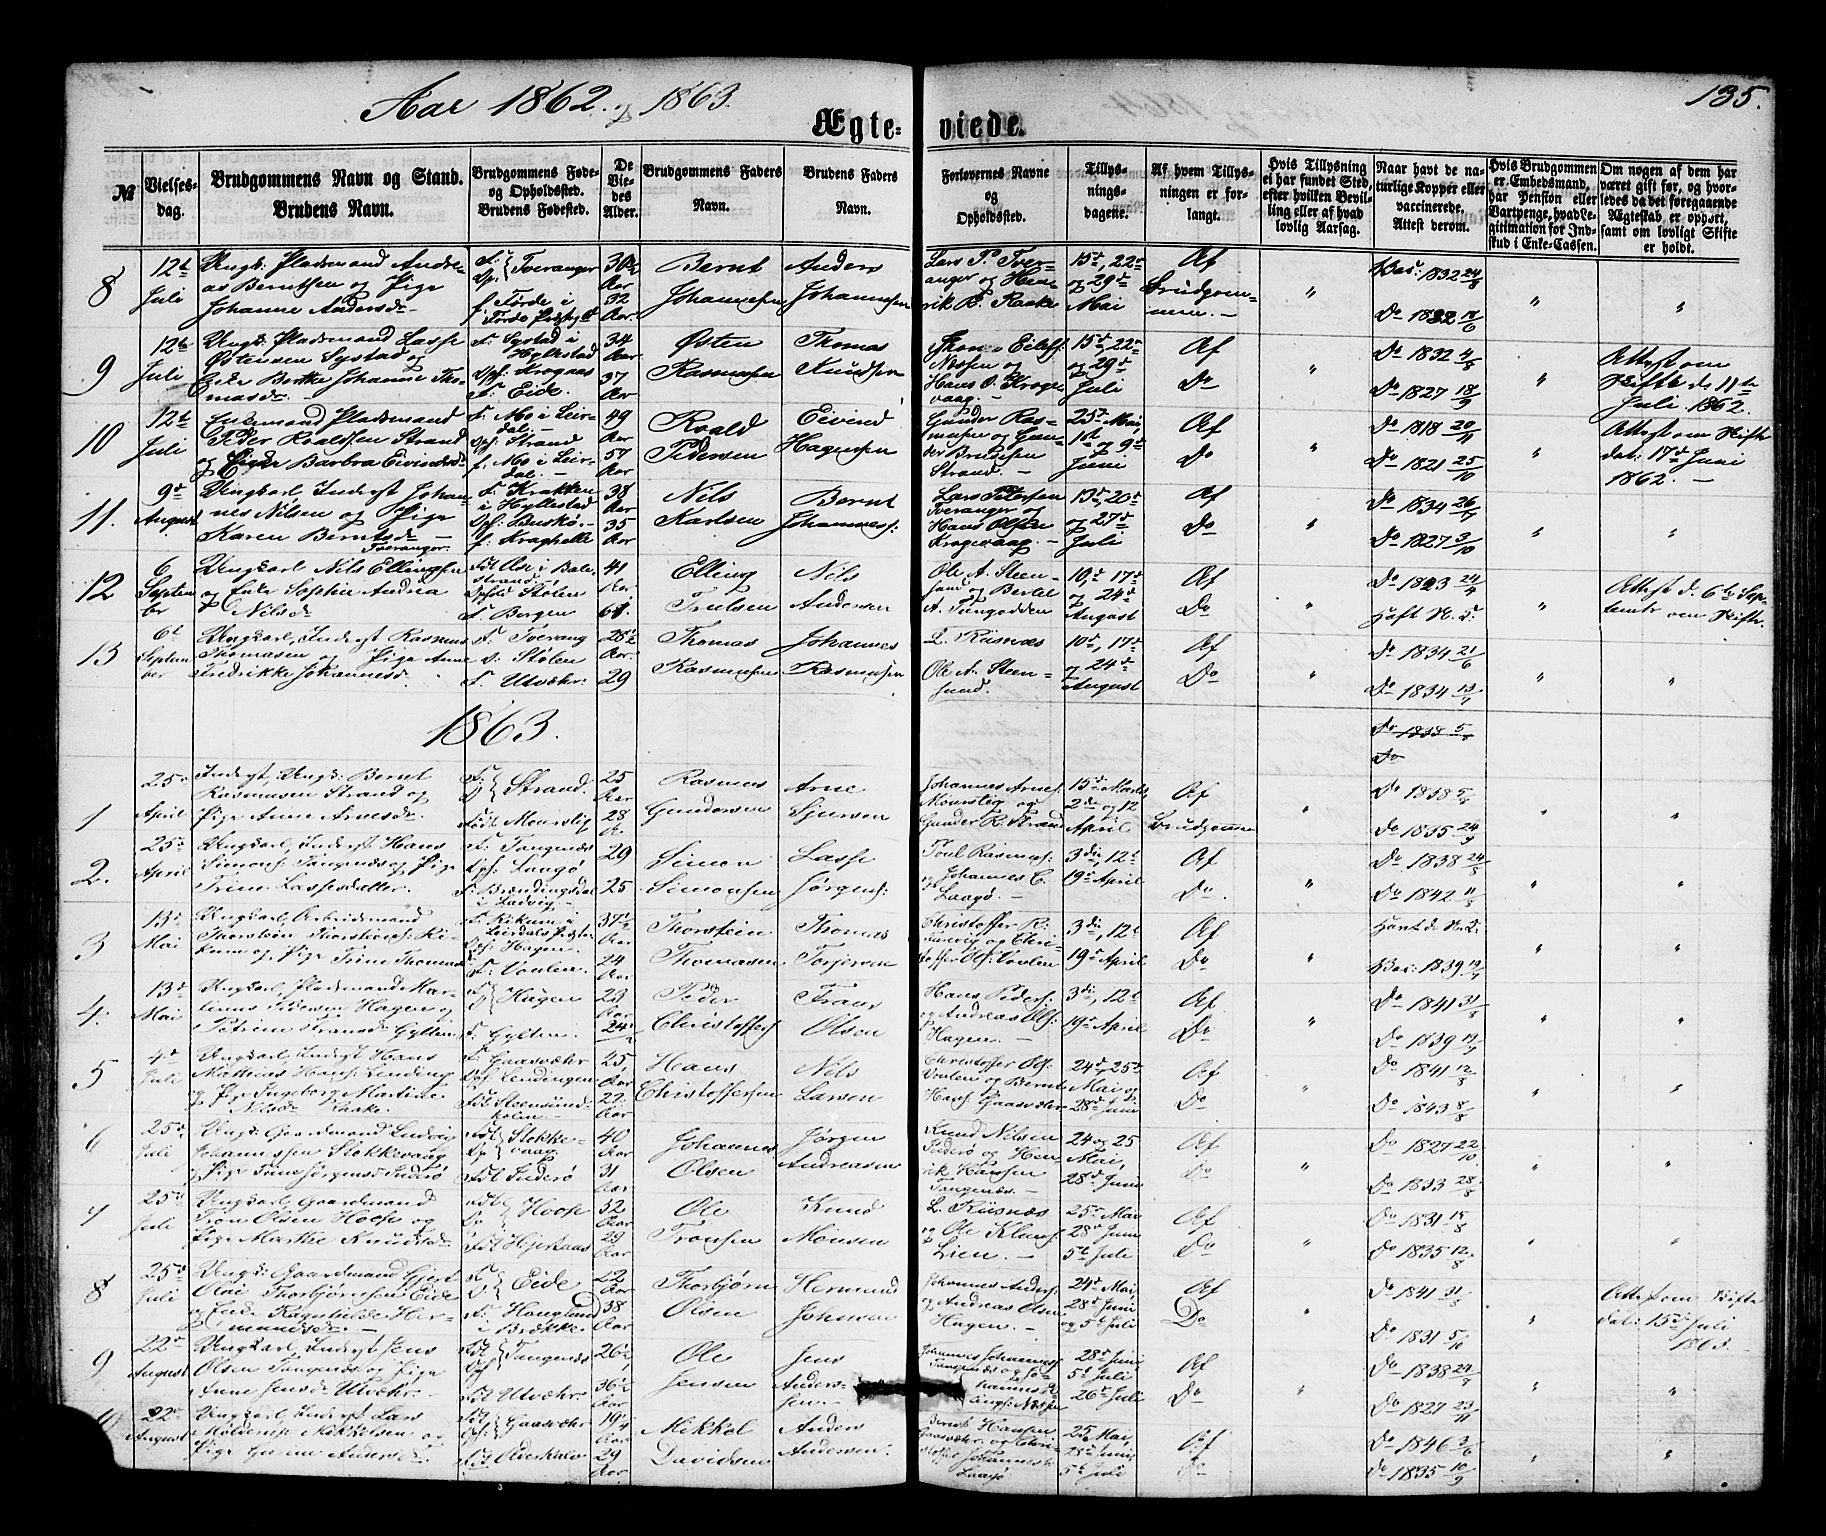 Aar 1862. og 1863.
135.
Ægte-viede.
№
Vielses-
dag.
Brudgommens Navn og Stand.
Brudens Navn.
Brudgommens Føde-
og Opholdssted.
Brudens Fødested.
De
Vie-
des
Alder.
Brudgommens Faders
Navn.
Brudens Faders
Navn.
Forlovernes Navne
og
Opholdssted.
Tillys-
nings-
dagene.
Af hvem Tillys-
ningen er for-
langt.
Hvis Tillysning
ei har fundet Sted,
efter hvilken Bevil-
ling eller af hvad
lovlig Aarsag.
Naar havt de na-
turlige Kopper eller
vaccinerede.
Attest derom.
Hvis Brudgommen
er Embedsmand,
har Pension eller
Vartpenge, hvad Le-
gitimation for Ind-
skud i Enke-Cassen.
Om nogen af dem har
været gift før, og hvor-
ledes da det foregaaende
Ægteskab er ophørt,
samt om lovligt Skifte
er holdt.
8
12te
Juli
Ungk: Pladsmand Andre-
as Berntsen og Pige
Johanne Andersd.
Tveranger
f. Førde i
Førde Præstgd
Aar
32
Aar.
Bernt
Johannesen
Anders
Johannesen
Lars P. Tver-
anger og Hen-
rik B. Raake
15d, 22d
og 29d
Mai
Af
Brudgom-
men.
Vac: 1832 24/8
Do 1832
9
12te
Juli
Ungk: Pladsmand Lasse
Østensen Systad og
Enke Berthe Johanne Tho-
masd.
F. Systad i
Hyllestad
Opf. Krogaas
F. Eide.
34
Aar
37
Aar
Østen
Rasmusen
Thomas
Knudsen
Nilsen og
Hans O. Kroge-
vaag.
15d, 22d
og 29d
Juli
Af
Do
Do 1832
Do 1827
Attest om
Skifte d. 11te
Juli 1862.
10
12te
Juli
Enkemand Pladsmand
Peder Roaldsen Strand
og Pige Barbra Eivindsd.
F. Mo i Leir-
dal.
Opf: Strand
f. Mo i Leir-
dal.
49
Aar
57
Aar
Roald
Pedersen
Eivind
Hagensen
Gunder Ras-
musen og Gun-
der
Strand.
25d Mai,
1st
og 9d
Juni
Af
Do
Do 1818 20/11
Do 1821 25/10
Attest om Skifte
dat: 17d Juni
1862.
11.
9d
August
Ungkarl, Inderst Johan-
nes Nilsen og Pige
Karen Berntsd.
Tveranger.
F. Krakken
i Hyllestad
Opf: Buskø.
f. Kraghelle
38
Aar
35
Aar
Nils
Karlsen
Bernt
Johannes:
Lars Petersen
Tveranger og
Hans Olsen
Krogevaag.
13d, 20d
og 27d
Juli
Af
Do
Do 1834 26/9
Do 1827 3/10
12
6
Septem
ber
Ungkarl Nils Ellingsen
og Enke Sophie Andrea
Nilsd.
Fdt Ose i Bale-
strand.
Opfd Stølen
F. Bergen
41
Aar
61.
Elling
Truelsen
Nils
Andersen
Ole A. Steen-
sund og Bertel
A. Tungodden
10, d 17d
og 24d
August
Af
Do
Do 1823 24/4
Attest d. 6te Sep-
tembr om Skifte.
13
6t
Septem
ber
Ungkarl, Inderst Rasmus
Thomasen og Pige Anne
Fredrikke Johannesd.
F. Tverang
O: Stølen
F. Utvæhr:
28 1/2
Aar.
29
Thomas
Rasmusen
Johannes
Rasmusen
L. Risnæs
Ole A. Steen-
sund.
10d, 17d
og 24d
August
Af
Do
Do 1834 21/6
Do 1834
1863.
Do 1838 5/8
Do
1
25d
April
Inderst, Ungk: Bernt
Rasmusen Strand og
Pige Anne Arnesd.
Strand.
Født Mourslig
25
Aar
28
Rasmus
Gundersen
Arne
Sjursen
Johannes Arnes:
og
Gunder R. Strand
15d Marts
2den og 12
April
Af
Brudgommen
Do 1838
Do 1835 24/9
2.
25d
April
Ungkarl, Inderst Hans
Simons: Tangenæs og Pige
Trine Lassesdatter.
F. Tangenæs
Opf: Laagø
F. Brændingsdal
i Ladvig
29
25
Simon
Simonsen
Lasse
Jørgens:
Poul Rasmus:
og Johannes C.
Laagø.
3die, 12t
19d April
Af
Do.
Do 1838 24/8
Do 1842 11/8
3
13d
Mai
Ungkarl Arbeidsmand
Thorstein Thorsteins: Ri-
kum og Pige Trine Thomasd.
F. Rikum i
Leirdals
Opf: Hagen
F. Voulen.
37 1/2
Aar
24
Aar
Thorstein
Thomasen
Thomas
Torgersen
Christoffer R.
og Chri-
stoffer Ols: Voulen
3die, 12t
19d April
Af
Do
Vac: 1839 19/9
4.
13d
Mai
Ungkarl, Pladsmand Mar-
tinus Pedersen Hagen og
Petrine Fransd. Gylten
Hagen
F. Gylten
23
Aar
24
Peder
Christoffers:
Frans
Olsen
Hans Peders:
og Andreas Ols:
Hagen.
3die, 12t
19d April
Af
Do
Do 1841 31/8
Do 1839 19/9
5
4d
Juli
Ungkarl, Inderst Hans
Mathias Hans: Lending
og Pige Ingeborg Martine
Nilsd Raake.
F: Gaasvæhr
Opf: Lendingen
Fdt Steensund-
holen.
25,
Aar
22
Aar
Hans
Christoffersen
Nils
Larsen
Christoffer Ols:
Voulen og Bernt
Hans: Gaasvæhr
24d, 25d
Mai og
28d Juni
Af
Do
Do 1841 12/8
Do 1843 8/8
6
25d
Juli
Ungk: Gaardmand Ludvig
Johannessen Stokkevaag
og Pige Trine Jørgensd. Inderø
Stokke-
vaag
Fdt Inderø
40
Aar
31
Aar
Johannes
Olsen
Jørgen
Andreasen
Knud Nilsen
Inderø og Hen-
rik Hansen
Tangenæs.
24 og 25
Mai,
28d Juni
Af
Do
Do 1827 22/10
Do 1833 28/8
7
25d
Juli
Ungkarl, Gaardmand
Tron Olsen Hope og
Pige Marthe Knudsd.
Hope
Fdt Hjertaas
32
Aar
29
Aar
Ole
Tronsen
Knud
Monsen
L. Risnæs
og Ole Klaus:
Lien.
25d Mai
28d Juni
5te Juli
Af
Do
Do 1831
Do 1835 12/8
8
25d
Juli
Ungk: Gaardmand Gjert
Olai Thorbjørnsen Eide
og Enke Ragnhilde Her-
mundsd.
Eide
F. Hougland
i Brække.
22
Aar
38
Aar
Thorbjørn
Olsen
Hermund
Johnsen
Johannes Anders:
og Andreas Olsen
Hagen.
24d Mai,
28d Juni
og 5te Juli
Af
Do
Do 1841 31/8
Do 1831 5/10
Attest om Skifte
dat: 15d Juli
1863.
9
22d
August
Ungkarl, Inderst Jens
Olsen Tangenæs og Pige
Anne Jensd. Utvæhr.
Tangenæs
Fdt Utvæhr.
26 1/2
36 1/2
Aar
Ole
Jensen
Jens
Anders-
sen.
Johannes Johannes:
Tangenæs og Jo-
28d Juni,
5t Juli
26d Juli
Af
Do
Do 1838 24/8
Do 1827 23/11
10
22d
August
Ungkarl, Inderst Lars
Mikkelsen og
Pige Andersd.
Gaasvæhr
19 1/4
Aar
29
Aar
Mikkel
Davidsen
Anders
Andersen.
Hansen
Gaasvæhr og Chri-
stoffer Johannes:
Laagø
25 Mai,
28d Juni,
5te Juli
Af
Do
Do 1846 3/6
Do 1835 10/9